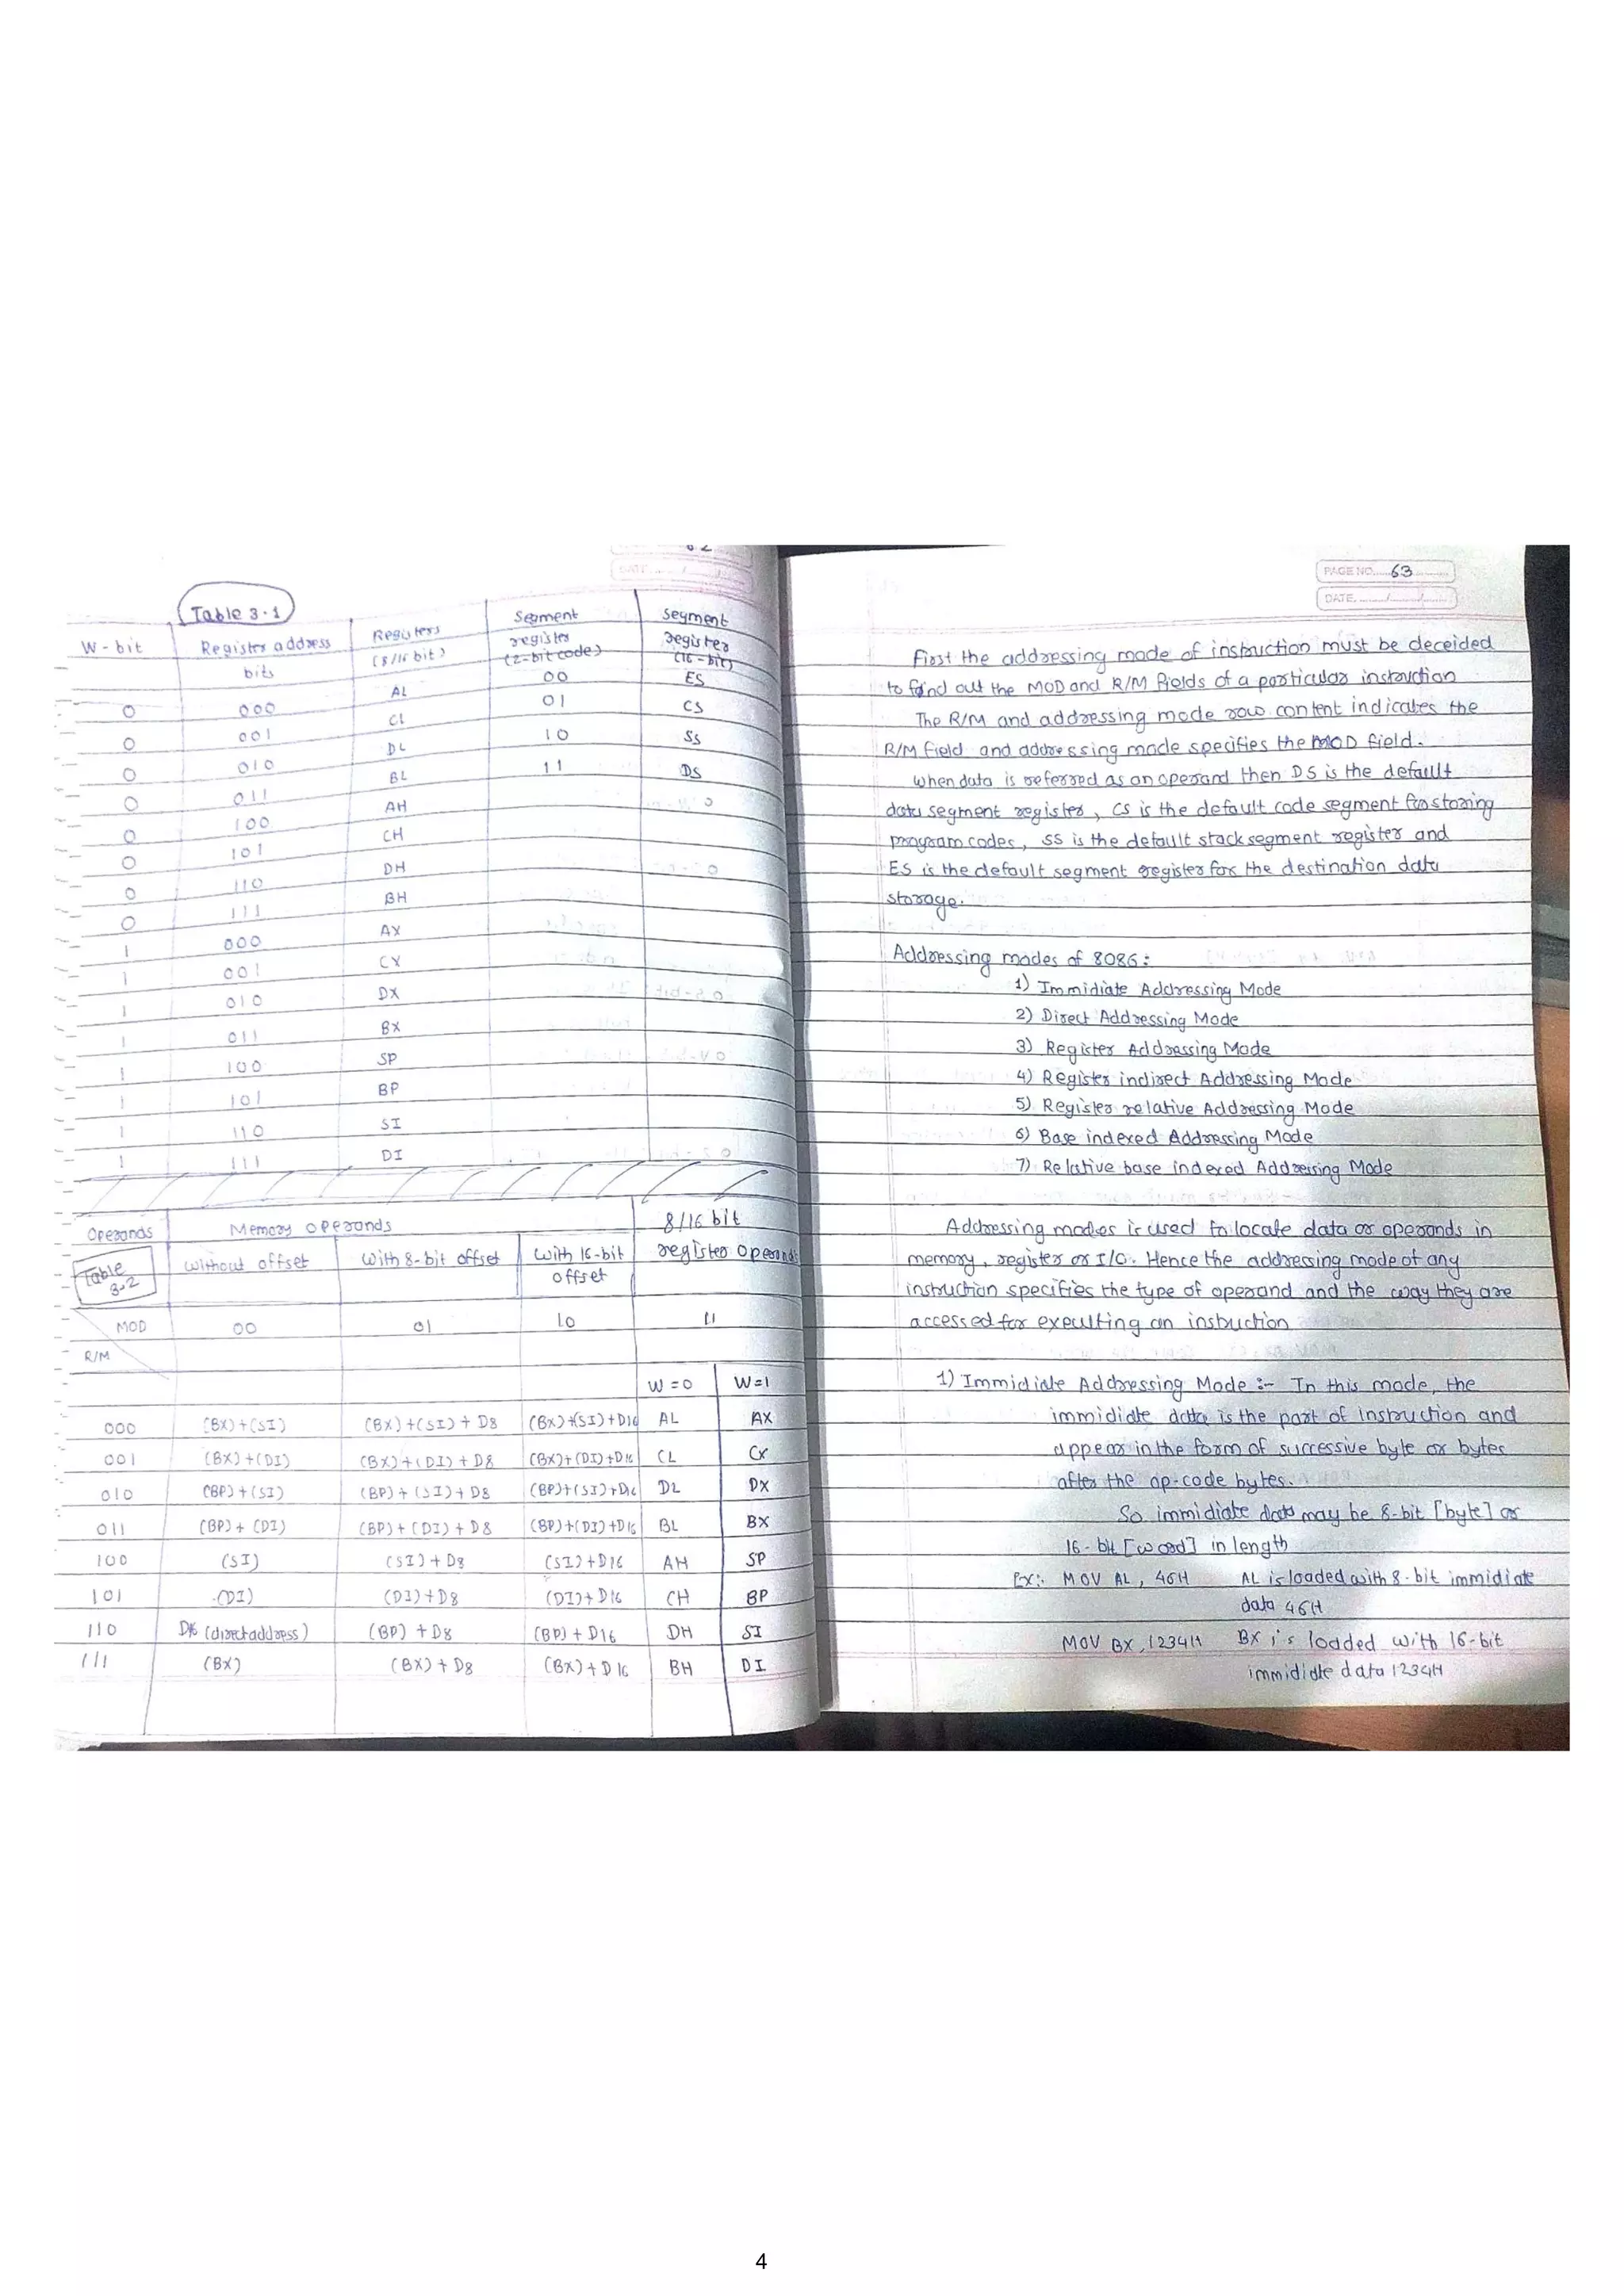 Table 3.1
W-bit Register address bits Registers (8/16 bit) Segment register (2-bit code) Segment register (16-bit)
0 000 AL 00 ES
0 001 CL 01 CS
0 010 DL 10 SS
0 011 BL 11 DS
0 100 AH
0 101 CH
0 110 DH
0 111 BH
1 000 AX
1 001 CX
1 010 DX
1 011 BX
1 100 SP
1 101 BP
1 110 SI
1 111 DI
Operands Memory operands 8/16 bit register operands
Table 3.2
without offset With 8-bit offset With 16-bit offset
MOD 00 01 10 11
R/M
W=0 W=1
000 (BX)+(SI) (BX)+(SI)+D8 (BX)+(SI)+D16 AL AX
001 (BX)+(DI) (BX)+(DI)+D8 (BX)+(DI)+D16 CL CX
010 (BP)+(SI) (BP)+(SI)+D8 (BP)+(SI)+D16 DL DX
011 (BP)+(DI) (BP)+(DI)+D8 (BP)+(DI)+D16 BL BX
100 (SI) (SI)+D8 (SI)+D16 AH SP
101 (DI) (DI)+D8 (DI)+D16 CH BP
110 D16 (direct address) (BP)+D8 (BP)+D16 DH SI
111 (BX) (BX)+D8 (BX)+D16 BH DI
PAGE NO. 63
DATE
First the addressing mode of instruction must be deceided
to find out the MOD and R/M fields of a particular instruction
The R/M and addressing mode row content indicates the
R/M field and addressing mode specifies the MOD field.
when data is referred as an operand then DS is the default
data segment register, CS is the default code segment for storing
program codes, SS is the default stack segment register and
ES is the default segment register for the destination data
storage.
Addressing modes of 8086:
1) Immidiate Addressing Mode
2) Direct Addressing Mode
3) Register Addressing Mode
4) Register indirect Addressing Mode
5) Register relative Addressing Mode
6) Base indexed Addressing Mode
7) Relative base indexed Addressing Mode
Addressing modes is used to locate data or operands in
memory, register or I/O. Hence the addressing mode of any
instruction specifies the type of operand and the way they are
accessed for executing an instruction
1) Immidiate Addressing Mode :- In this mode, the
immidiate data is the part of instruction and
appear in the form of successive byte or bytes
after the op-code bytes.
So immidiate data may be 8-bit [byte] or
16-bit [word] in length
Ex:- MOV AL, 46H AL is loaded with 8-bit immidiate
data 46H
MOV BX, 1234H BX is loaded with 16-bit
immidiate data 1234H
4